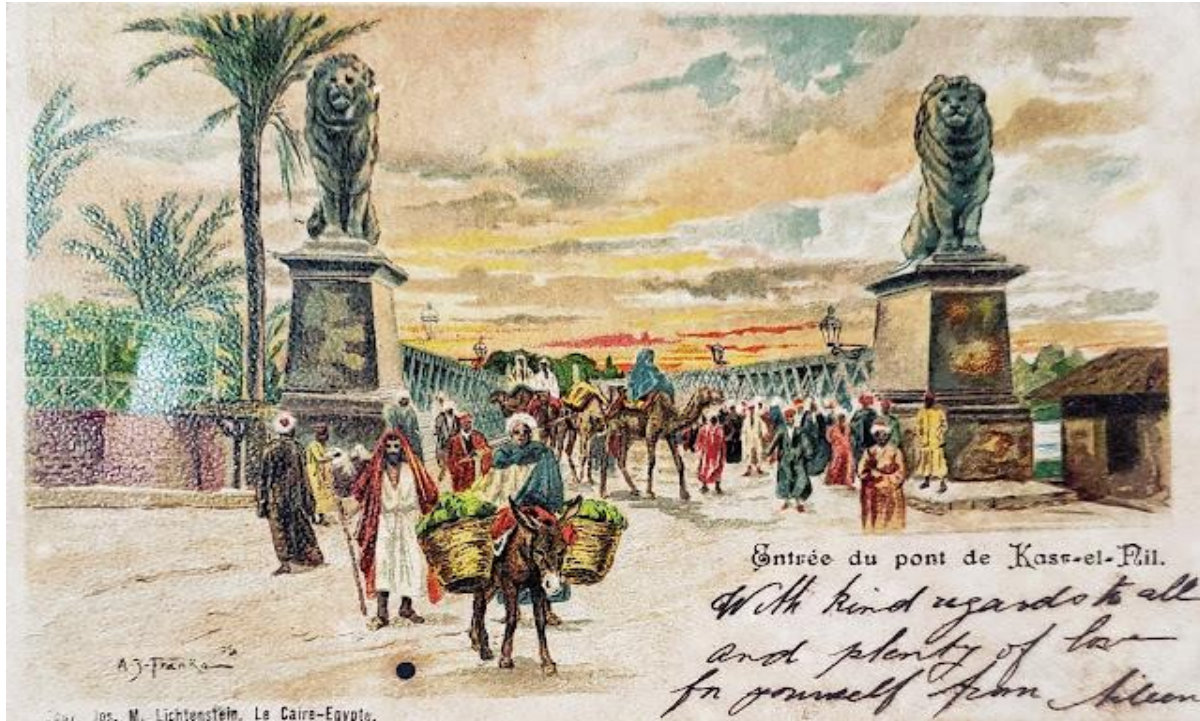 Entrée du pont de Kasr-el-Nil.
With kind regards to all
and plenty of love
for yourself from Aileen
A.J-Franke
Jos. M. Lichtenstein, Le Caire-Egypte.